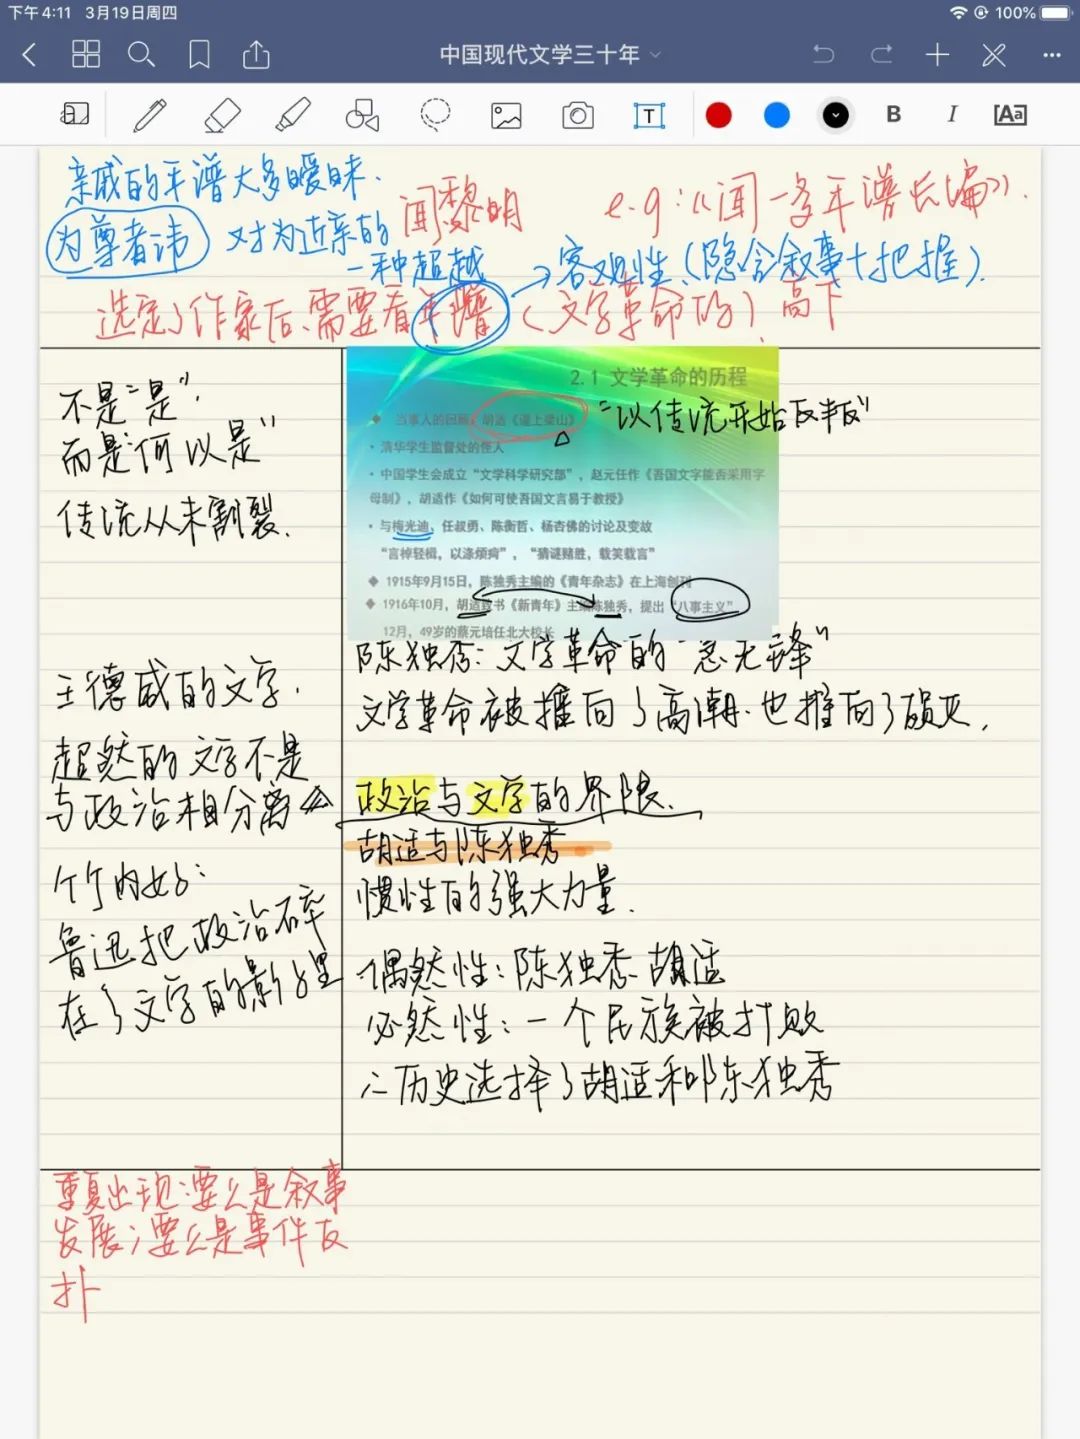 下午4:11 3月19日周四
100%
中国现代文学三十年
T
B I Aa
亲戚的年谱大多暧昧.
闻黎明 e.g:《闻一多年谱长编》.
为尊者讳 对为近亲的
一种超越 → 客观性.(隐含叙事+把握).
选定了作家后,需要看年谱 (文学革命的) 高下
不是“是”.
而是“何以是”
传统从未割裂.
2.1 文学革命的历程
◆ 当事人的回顾:胡适《逼上梁山》
“以传统开始反叛”
• 清华学生监督处的怪人
• 中国学生会成立“文学科学研究部”,赵元任作《吾国文字能否采用字
母制》,胡适作《如何可使吾国文言易于教授》
• 与梅光迪、任叔勇、陈衡哲、杨杏佛的讨论及变故
“言棹轻楫,以涤烦疴”,“猜谜赌胜,载笑载言”
◆ 1915年9月15日,陈独秀主编的《青年杂志》在上海创刊
◆ 1916年10月,胡适致书《新青年》主编陈独秀,提出“八事主义”
12月,49岁的蔡元培任北大校长
陈独秀:文学革命的“急先锋”
文学革命被推向了高潮.也推向了殒灭.
王德威的文学.
超然的文学不是
与政治相分离
政治与文学的界限.
胡适与陈独秀
惯性的强大力量.
竹内好:
鲁迅把政治碎
在了文学的影子里
偶然性:陈独秀.胡适
必然性:一个民族被打败
∴历史选择了胡适和陈独秀
重复出现:要么是叙事
发展;要么是事件反
扑